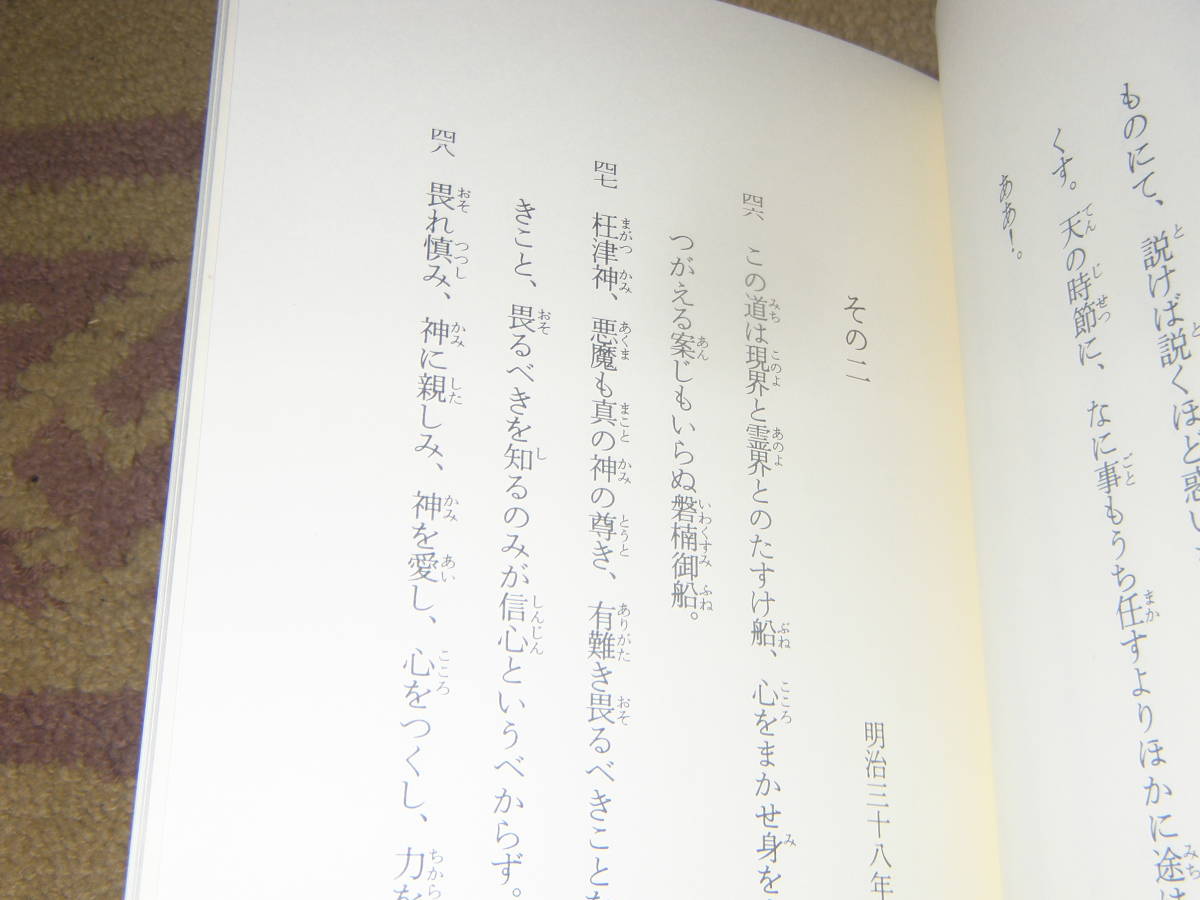 ものにて、説けば説くほど惑い
くす。天の時節に、なに事もうち任すよりほかに途は
ああ!。
その二
明治三十八年
四六 この道は現界と霊界とのたすけ船、心をまかせ身を
つがえる案じもいらぬ磐楠御船。
四七 枉津神、悪魔も真の神の尊き、有難き畏るべきことを
きこと、畏るべきを知るのみが信心というべからず。
四八 畏れ慎み、神に親しみ、神を愛し、心をつくし、力を